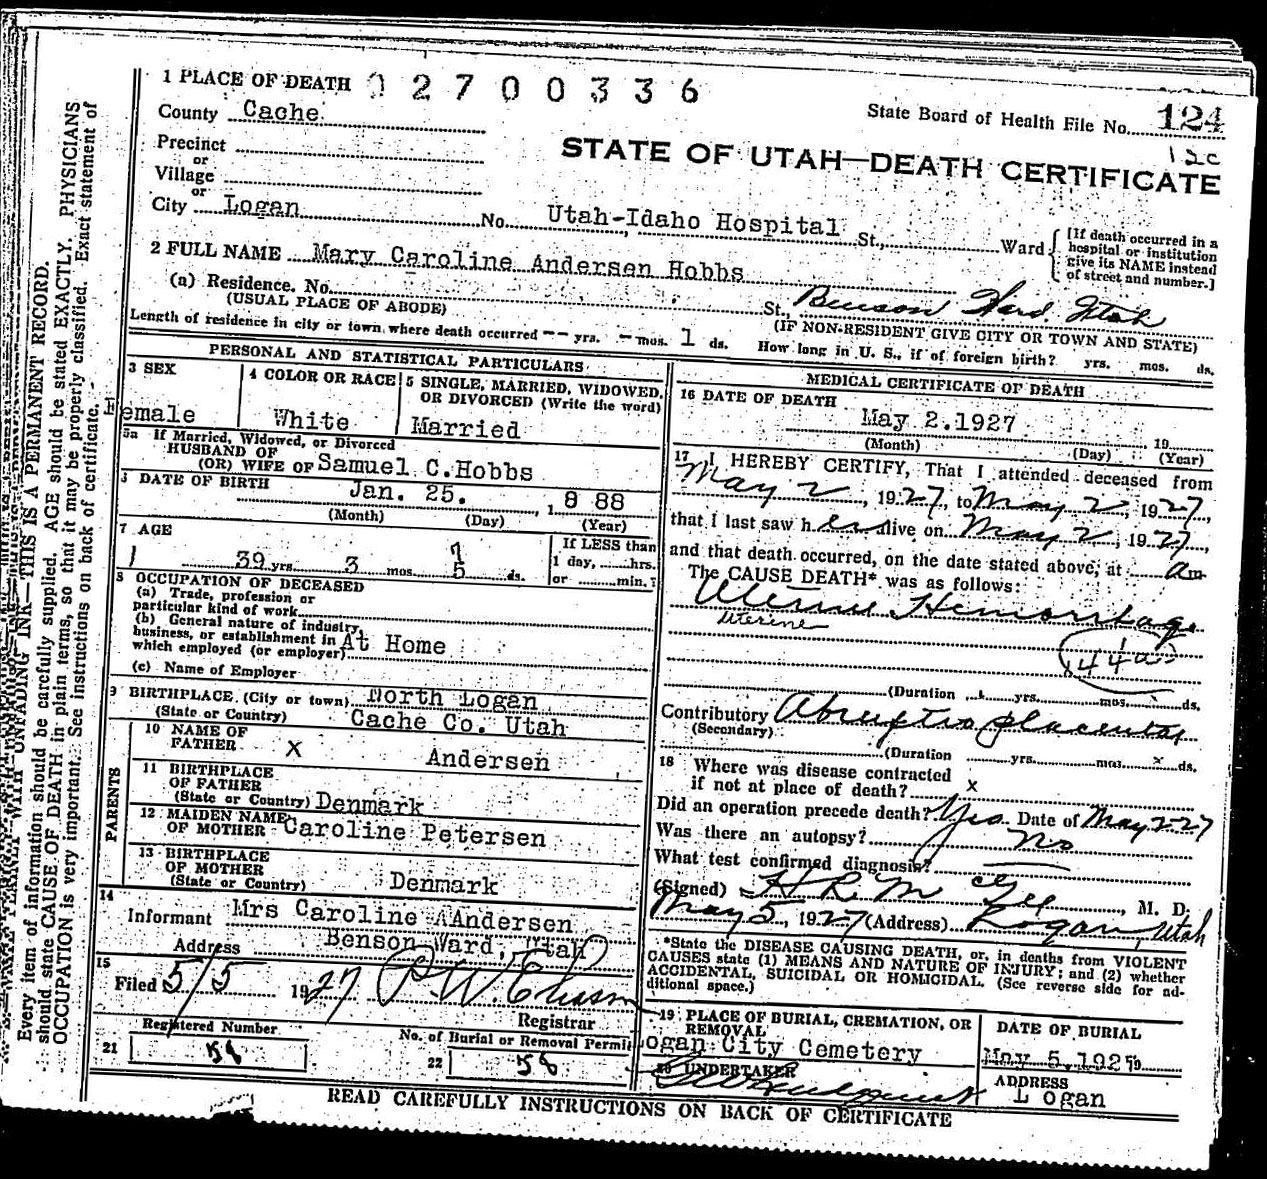 1 PLACE OF DEATH 02700336
State Board of Health File No. 124
County Cache
12c
STATE OF UTAH—DEATH CERTIFICATE
Precinct
or
Village
or
City Logan No. Utah-Idaho Hospital St., Ward
[If death occurred in a hospital or institution give its NAME instead of street and number.]
2 FULL NAME Mary Caroline Andersen Hobbs
(a) Residence. No. St., Benson Ward Utah
(USUAL PLACE OF ABODE) (IF NON-RESIDENT GIVE CITY OR TOWN AND STATE)
Length of residence in city or town where death occurred -- yrs. - mos. 1 ds. How long in U. S., if of foreign birth? yrs. mos. ds.
PERSONAL AND STATISTICAL PARTICULARS
3 SEX
emale
4 COLOR OR RACE
White
5 SINGLE, MARRIED, WIDOWED, OR DIVORCED (Write the word)
Married
5a If Married, Widowed, or Divorced
HUSBAND OF
(OR) WIFE OF Samuel C.Hobbs
DATE OF BIRTH Jan. 25. , 1 8 88
(Month) (Day) (Year)
7 AGE
39 yrs. 3 mos. 5 ds.
7
If LESS than
1 day, hrs.
or min.
8 OCCUPATION OF DECEASED
(a) Trade, profession or
particular kind of work
(b) General nature of industry,
business, or establishment in
which employed (or employer) At Home
(c) Name of Employer
9 BIRTHPLACE (City or town) North Logan
(State or Country) Cache Co. Utah
PARENTS
10 NAME OF
FATHER X Andersen
11 BIRTHPLACE
OF FATHER
(State or Country) Denmark
12 MAIDEN NAME
OF MOTHER Caroline Petersen
13 BIRTHPLACE
OF MOTHER
(State or Country) Denmark
14
Informant Mrs Caroline A Andersen
Address Benson Ward, Utah
15
Filed 5/5 1927
Registrar
Registered Number No. of Burial or Removal Permit
21 58 22 58
MEDICAL CERTIFICATE OF DEATH
16 DATE OF DEATH
May 2.1927 19
(Month) (Day) (Year)
17 I HEREBY CERTIFY, That I attended deceased from
May 2, 1927, to May 2, 1927,
that I last saw her alive on May 2, 1927,
and that death occurred, on the date stated above, at am
The CAUSE DEATH* was as follows:
Uterine Hemorrhage
Uterine
(Duration yrs. mos. ds.
Contributory Abruptio placentae
(Secondary)
(Duration yrs. mos. x ds.
18 Where was disease contracted
if not at place of death? x
Did an operation precede death? Yes Date of May 2-27
Was there an autopsy? No
What test confirmed diagnosis?
(Signed) H R McGee, M. D.
May 5, 1927 (Address) Logan, Utah
*State the DISEASE CAUSING DEATH, or, in deaths from VIOLENT
CAUSES state (1) MEANS AND NATURE OF INJURY; and (2) whether
ACCIDENTAL, SUICIDAL OR HOMICIDAL. (See reverse side for ad-
ditional space.)
19 PLACE OF BURIAL, CREMATION, OR
REMOVAL
ogan City Cemetery
DATE OF BURIAL
May 5.1927 19
20 UNDERTAKER
ADDRESS
Logan
READ CAREFULLY INSTRUCTIONS ON BACK OF CERTIFICATE
WRITE PLAINLY WITH UNFADING INK—THIS IS A PERMANENT RECORD.
Every item of information should be carefully supplied. AGE should be stated EXACTLY. PHYSICIANS
should state CAUSE OF DEATH in plain terms, so that it may be properly classified. Exact statement of
OCCUPATION is very important. See instructions on back of certificate.